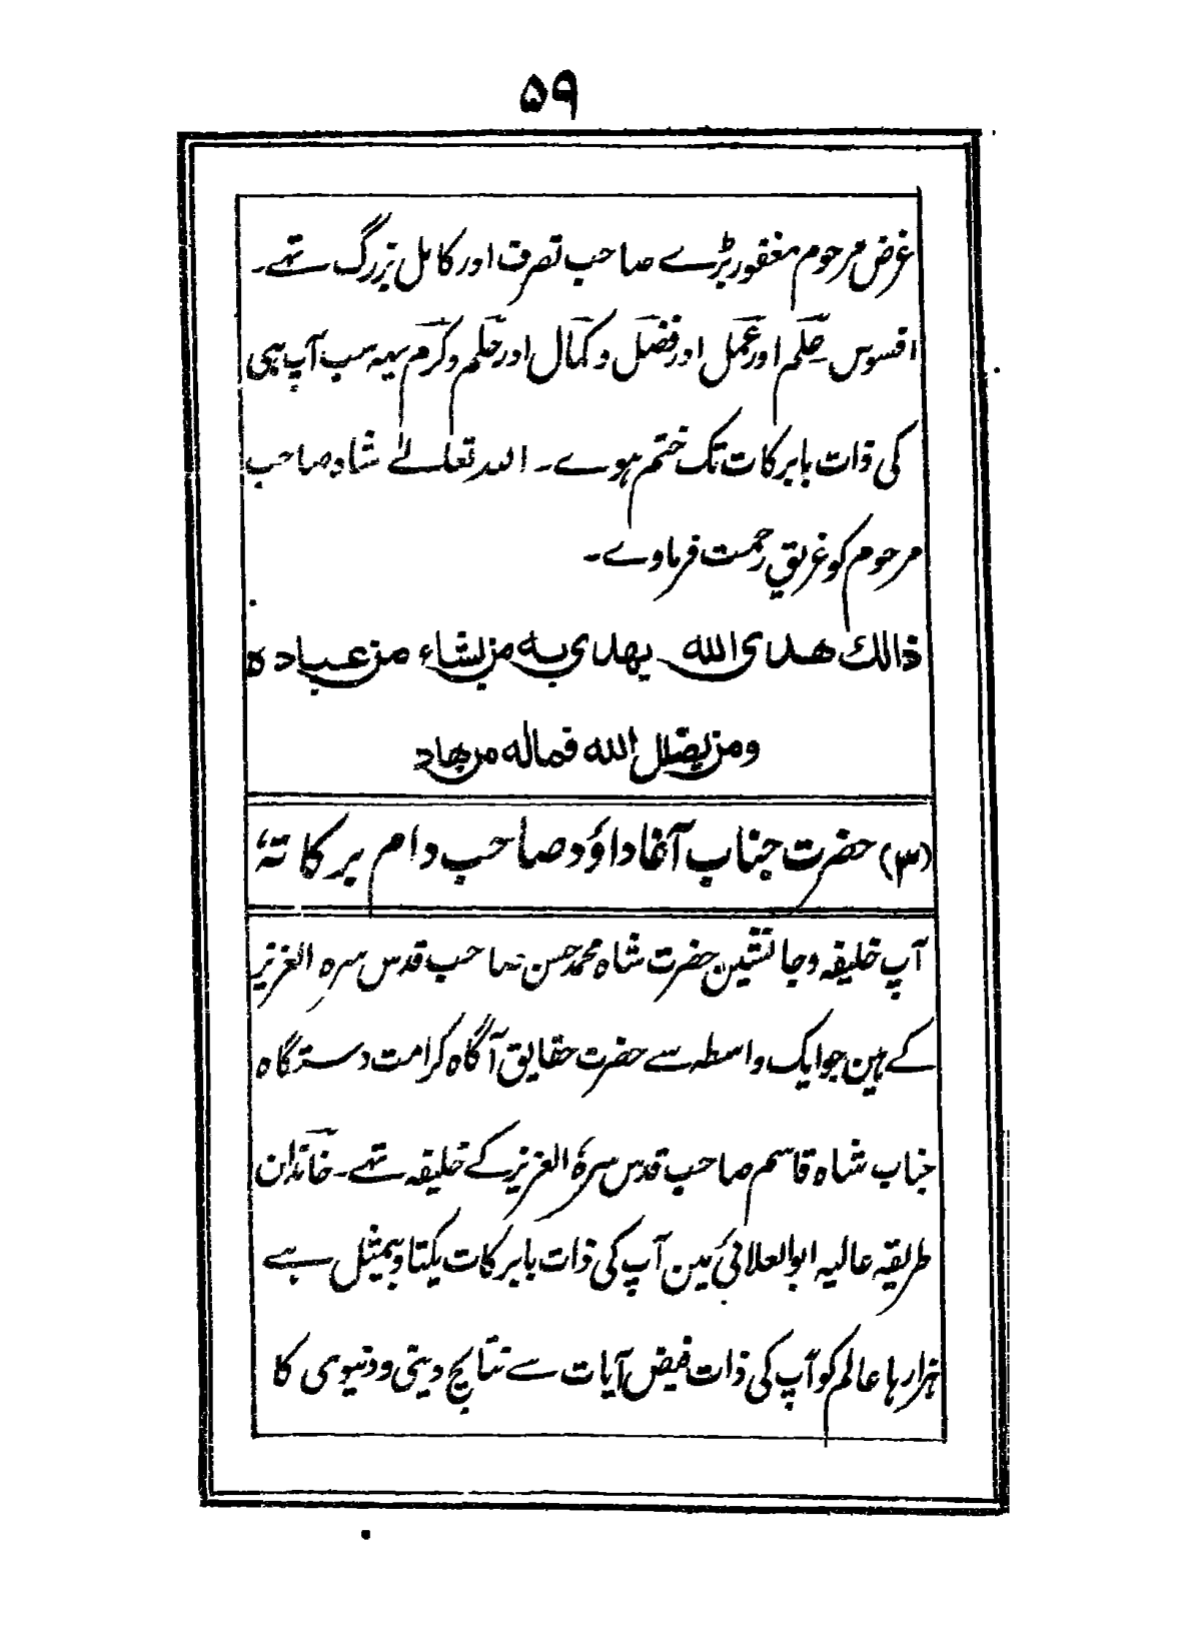 ۵۹
غرض مرحوم مغفور بڑے صاحب تصرف اور کامل بزرگ تہے۔
افسوس عِلم اور عَمل اور فضل و کمال اور حَلم و کَرم یہہ سب آپ ہی
کی ذات بابرکات تک ختم ہوے۔ اللہ تعالےٰ شاہ صاحب
مرحوم کو غریقِ رحمت فرماوے۔
ذالك هدى الله يهدى به من يشاء من عباده
ومن يضلل الله فماله من هاد
(۳) حضرت جناب آغا داؤد صاحب دام برکاتہٗ
آپ خلیفہ و جانشین حضرت شاہ محمد حسن صاحب قدس سرہ العزیز
کے ہین جو ایک واسطہ سے حضرت حقایق آگاہ کرامت دستگاہ
جناب شاہ قاسم صاحب قدس سرہٗ العزیز کے خلیفہ تہے۔ خاندان
طریقہ عالیہ ابوالعلائی مین آپ کی ذات بابرکات یکتا و بیمثل ہے
ہزارہا عالم کو آپ کی ذات فیض آیات سے نتایج دینی و دنیوی کا